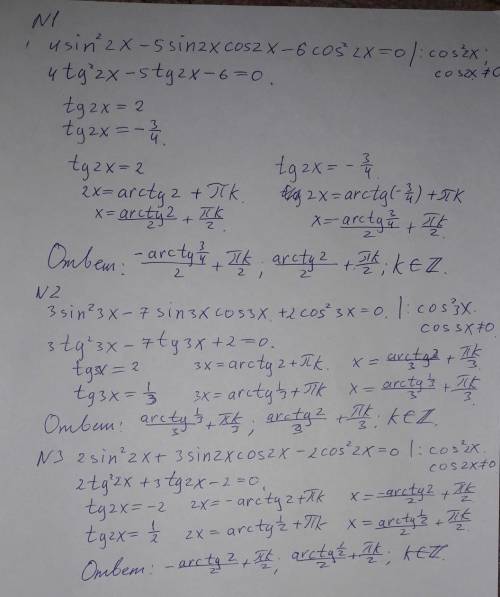 N1
4sin²2x - 5sin2x cos2x - 6cos²2x = 0 |: cos²2x;
cos2x≠0
4tg²2x - 5tg2x - 6 = 0.
tg2x = 2
tg2x = -3/4.
tg2x = 2 tg2x = -3/4
2x = arctg2 + πk 2x = arctg(-3/4) + πk
x = arctg2/2 + πk/2. x = -arctg 3/4 /2 + πk/2
Ответ: -arctg 3/4 /2 + πk/2; arctg2/2 + πk/2; k∈Z.
N2
3sin²3x - 7sin3x cos3x + 2cos²3x = 0. |: cos²3x.
cos3x≠0
3tg²3x - 7tg3x + 2 = 0.
tg3x = 2 3x = arctg2 + πk. x = arctg2/3 + πk/3
tg3x = 1/3 3x = arctg 1/3 + πk x = arctg 1/3 /3 + πk/3
Ответ: arctg 1/3 /3 + πk/3; arctg2/3 + πk/3; k∈Z.
N3 2sin²2x + 3sin2x cos2x - 2cos²2x = 0 |: cos²2x.
cos2x≠0
2tg²2x + 3tg2x - 2 = 0.
tg2x = -2 2x = -arctg2 + πk x = -arctg2/2 + πk/2
tg2x = 1/2 2x = arctg 1/2 + πk x = arctg 1/2 /2 + πk/2.
Ответ: -arctg2/2 + πk/2; arctg 1/2 /2 + πk/2; k∈Z